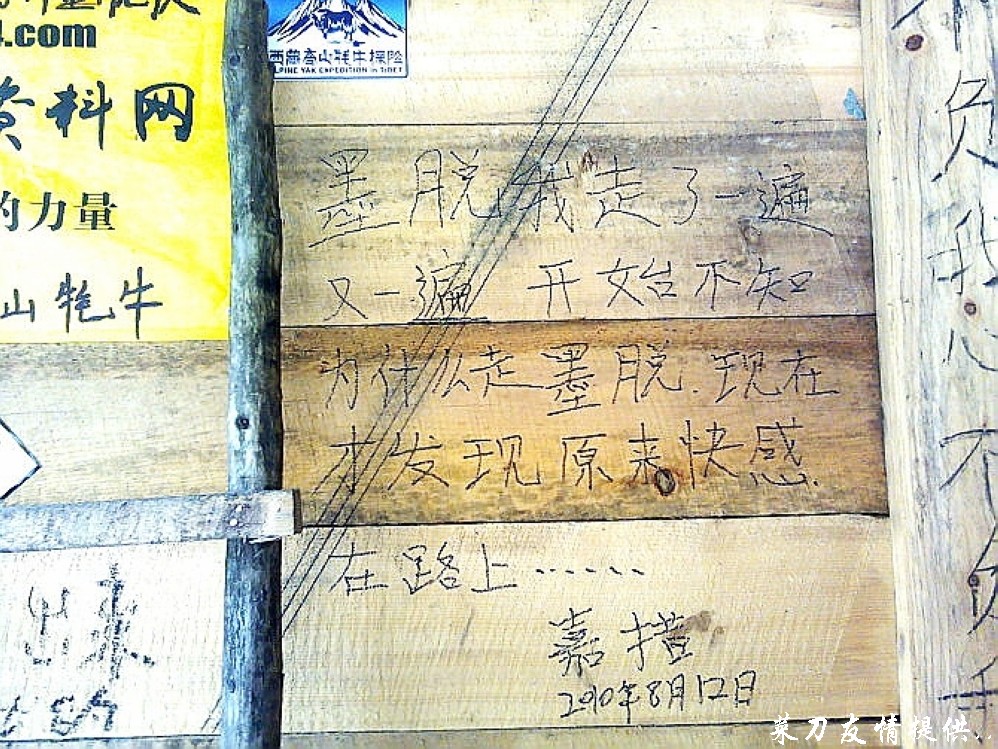 4.com
资料网
的力量
山牦牛
西藏高山牦牛探险
ALPINE YAK EXPEDITION in TIBET
墨脱,我走了一遍
又一遍 开始不知
为什么走墨脱.现在
才发现原来快感
在路上……
嘉措
2010年8月12日
出来
负我心不负
菜刀友情提供..